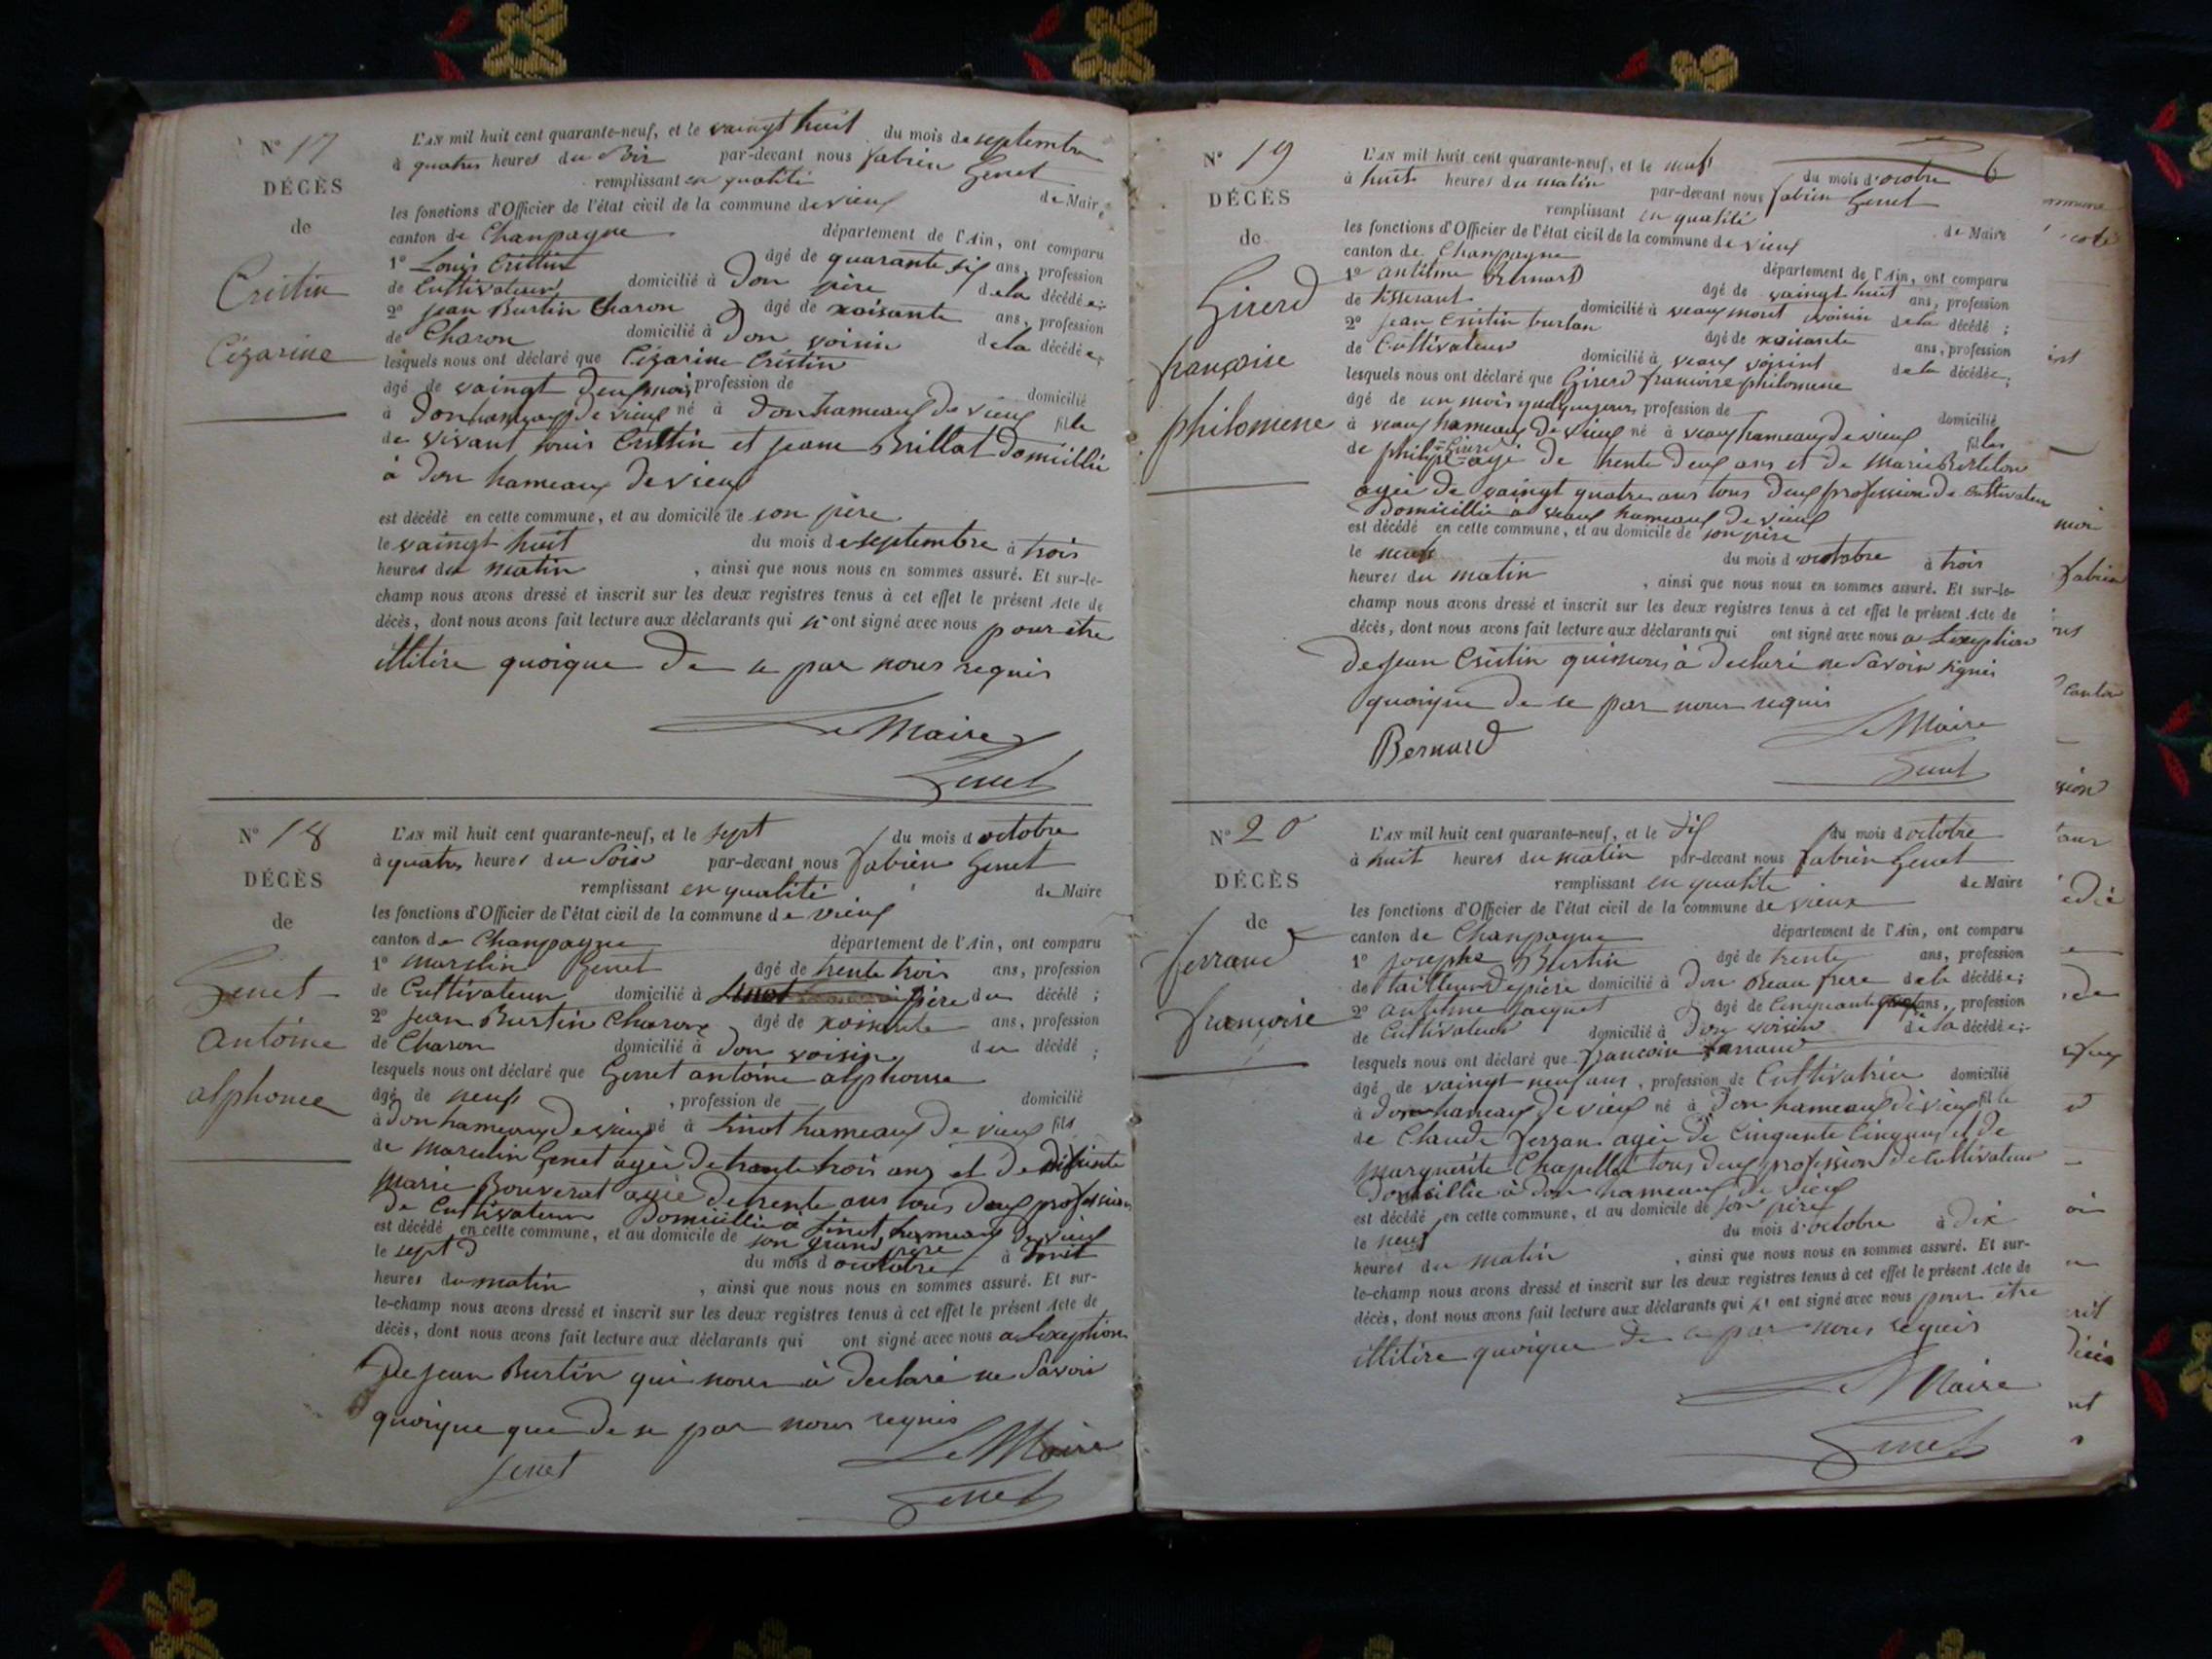 N° 17
DÉCÈS
de
Cristin
Cézarine
L'AN mil huit cent quarante-neuf, et le vaingt huit du mois de septembre
à quatres heures du Soir par-devant nous fabien Genet
remplissant en qualité de Maire
les fonctions d'Officier de l'état civil de la commune de vieux
canton de Champagne département de l'Ain, ont comparu
1° Louis Cristin âgé de quarante six ans, profession
de Cultivateur domicilié à Don père de la décédée;
2° jean Burtin Charon âgé de xoisante ans, profession
de Charon domicilié à Don voisin de la décédée;
lesquels nous ont déclaré que Cézarine Cristin
âgé de vaingt deux mois profession de domicilié
à Don hameaux de vieux né à Don hameaux de vieux fille
de vivant Louis Cristin et jeane Brillat Domicillié
à Don hameaux de vieux
est décédé en cette commune, et au domicile de son père
le vaingt huit du mois de septembre à trois
heures du matin , ainsi que nous nous en sommes assuré. Et sur-le-
champ nous avons dressé et inscrit sur les deux registres tenus à cet effet le présent Acte de
décès, dont nous avons fait lecture aux déclarants qui n'ont signé avec nous pour être
illitire quoique de ce par nous requis
Le Maire
Genet
N° 18
DÉCÈS
de
Genet
antoine
alphonce
L'AN mil huit cent quarante-neuf, et le sept du mois d octobre
à quatres heures du Soir par-devant nous fabien Genet
remplissant en qualité de Maire
les fonctions d'Officier de l'état civil de la commune de vieux
canton de Champagne département de l'Ain, ont comparu
1° marselin Genet âgé de trente trois ans, profession
de Cultivateur domicilié à Linot père du décédé;
2° jean Burtin Charon âgé de xoisante ans, profession
de Charon domicilié à Don voisin du décédé;
lesquels nous ont déclaré que Genet antoine alphonse
âgé de neuf , profession de domicilié
à Don hameaux de vieux né à Linot hameaux de vieux fils
de marcelin Genet agée de trante trois ans et de difunte
marie Bouverat agée de trente ans tous deux profession
de Cultivateur Domicillié a Linot hameaux de vieux
est décédé en cette commune, et au domicile de son grand père
le sept du mois d octobre à
heures du matin , ainsi que nous nous en sommes assuré. Et sur-
le-champ nous avons dressé et inscrit sur les deux registres tenus à cet effet le présent Acte de
décès, dont nous avons fait lecture aux déclarants qui ont signé avec nous a lexeption
de jean Burtin qui nous à declaré ne Savoir
quoique que de se par nous requis
Genet Le Maire
Genet
6
N° 19
DÉCÈS
de
Girerd
françoise
philomene
L'AN mil huit cent quarante-neuf, et le neuf du mois d'octobre
à huit heures du matin par-devant nous fabien Genet
remplissant en qualité de Maire
les fonctions d'Officier de l'état civil de la commune de vieux
canton de Champagne département de l'Ain, ont comparu
1° antelme Bernard âgé de vaingt huit ans, profession
de tisserant domicilié à voisin de la décédé;
2° jean Cristin burlan âgé de xoisante ans, profession
de Cultivateur domicilié à veaux voisint de la décédée;
lesquels nous ont déclaré que Girerd francoise philomene
âgé de un mois profession de domicilié
à veaux hameaux de vieux né à veaux hameaux de vieux filles
de philipe Girerd agé de trente deux ans et de Marie Bertelon
agée de vaingt quatre ans tous deux profession de Cultivateur
Domicillié à veaux hameaux de vieux
est décédé en cette commune, et au domicile de son père
le neuf du mois d'octobre à trois
heures du matin , ainsi que nous nous en sommes assuré. Et sur-le-
champ nous avons dressé et inscrit sur les deux registres tenus à cet effet le présent Acte de
décès, dont nous avons fait lecture aux déclarants qui ont signé avec nous a Lexeption
de jean Cristin qui nous à declaré ne Savoir signer
quoique de se par nous requis
Le Maire
Bernard Genet
N° 20
DÉCÈS
de
ferrand
francoise
L'AN mil huit cent quarante-neuf, et le dix du mois d octobre
à huit heures du matin par-devant nous fabien Genet
remplissant en qualité de Maire
les fonctions d'Officier de l'état civil de la commune de vieux
canton de Champagne département de l'Ain, ont comparu
1° josephe Burtin âgé de trente ans, profession
de tailleur de pière domicilié à Don Beau frere de la décédée;
2° antelme jacquet âgé de Cinquante ans, profession
de Cultivateur domicilié à Don voisin de la décédée;
lesquels nous ont déclaré que francoise ferrand
âgé de vaingt neuf ans, profession de Cultivatrice domicilié
à Don hameaux de vieux né à Don hameaux de vieux fille
de Claude ferran agée de Cinquante Cinq ans et de
Marguerite Chapelle tous deux profession de Cultivateur
Domicillié à Don hameaux de vieux
est décédé en cette commune, et au domicile de son père
le neuf du mois d'octobre à dix
heures du matin , ainsi que nous nous en sommes assuré. Et sur-
le-champ nous avons dressé et inscrit sur les deux registres tenus à cet effet le présent Acte de
décès, dont nous avons fait lecture aux déclarants qui n'ont signé avec nous pour être
illitire quoique de ce par nous requis
Le Maire
Genet